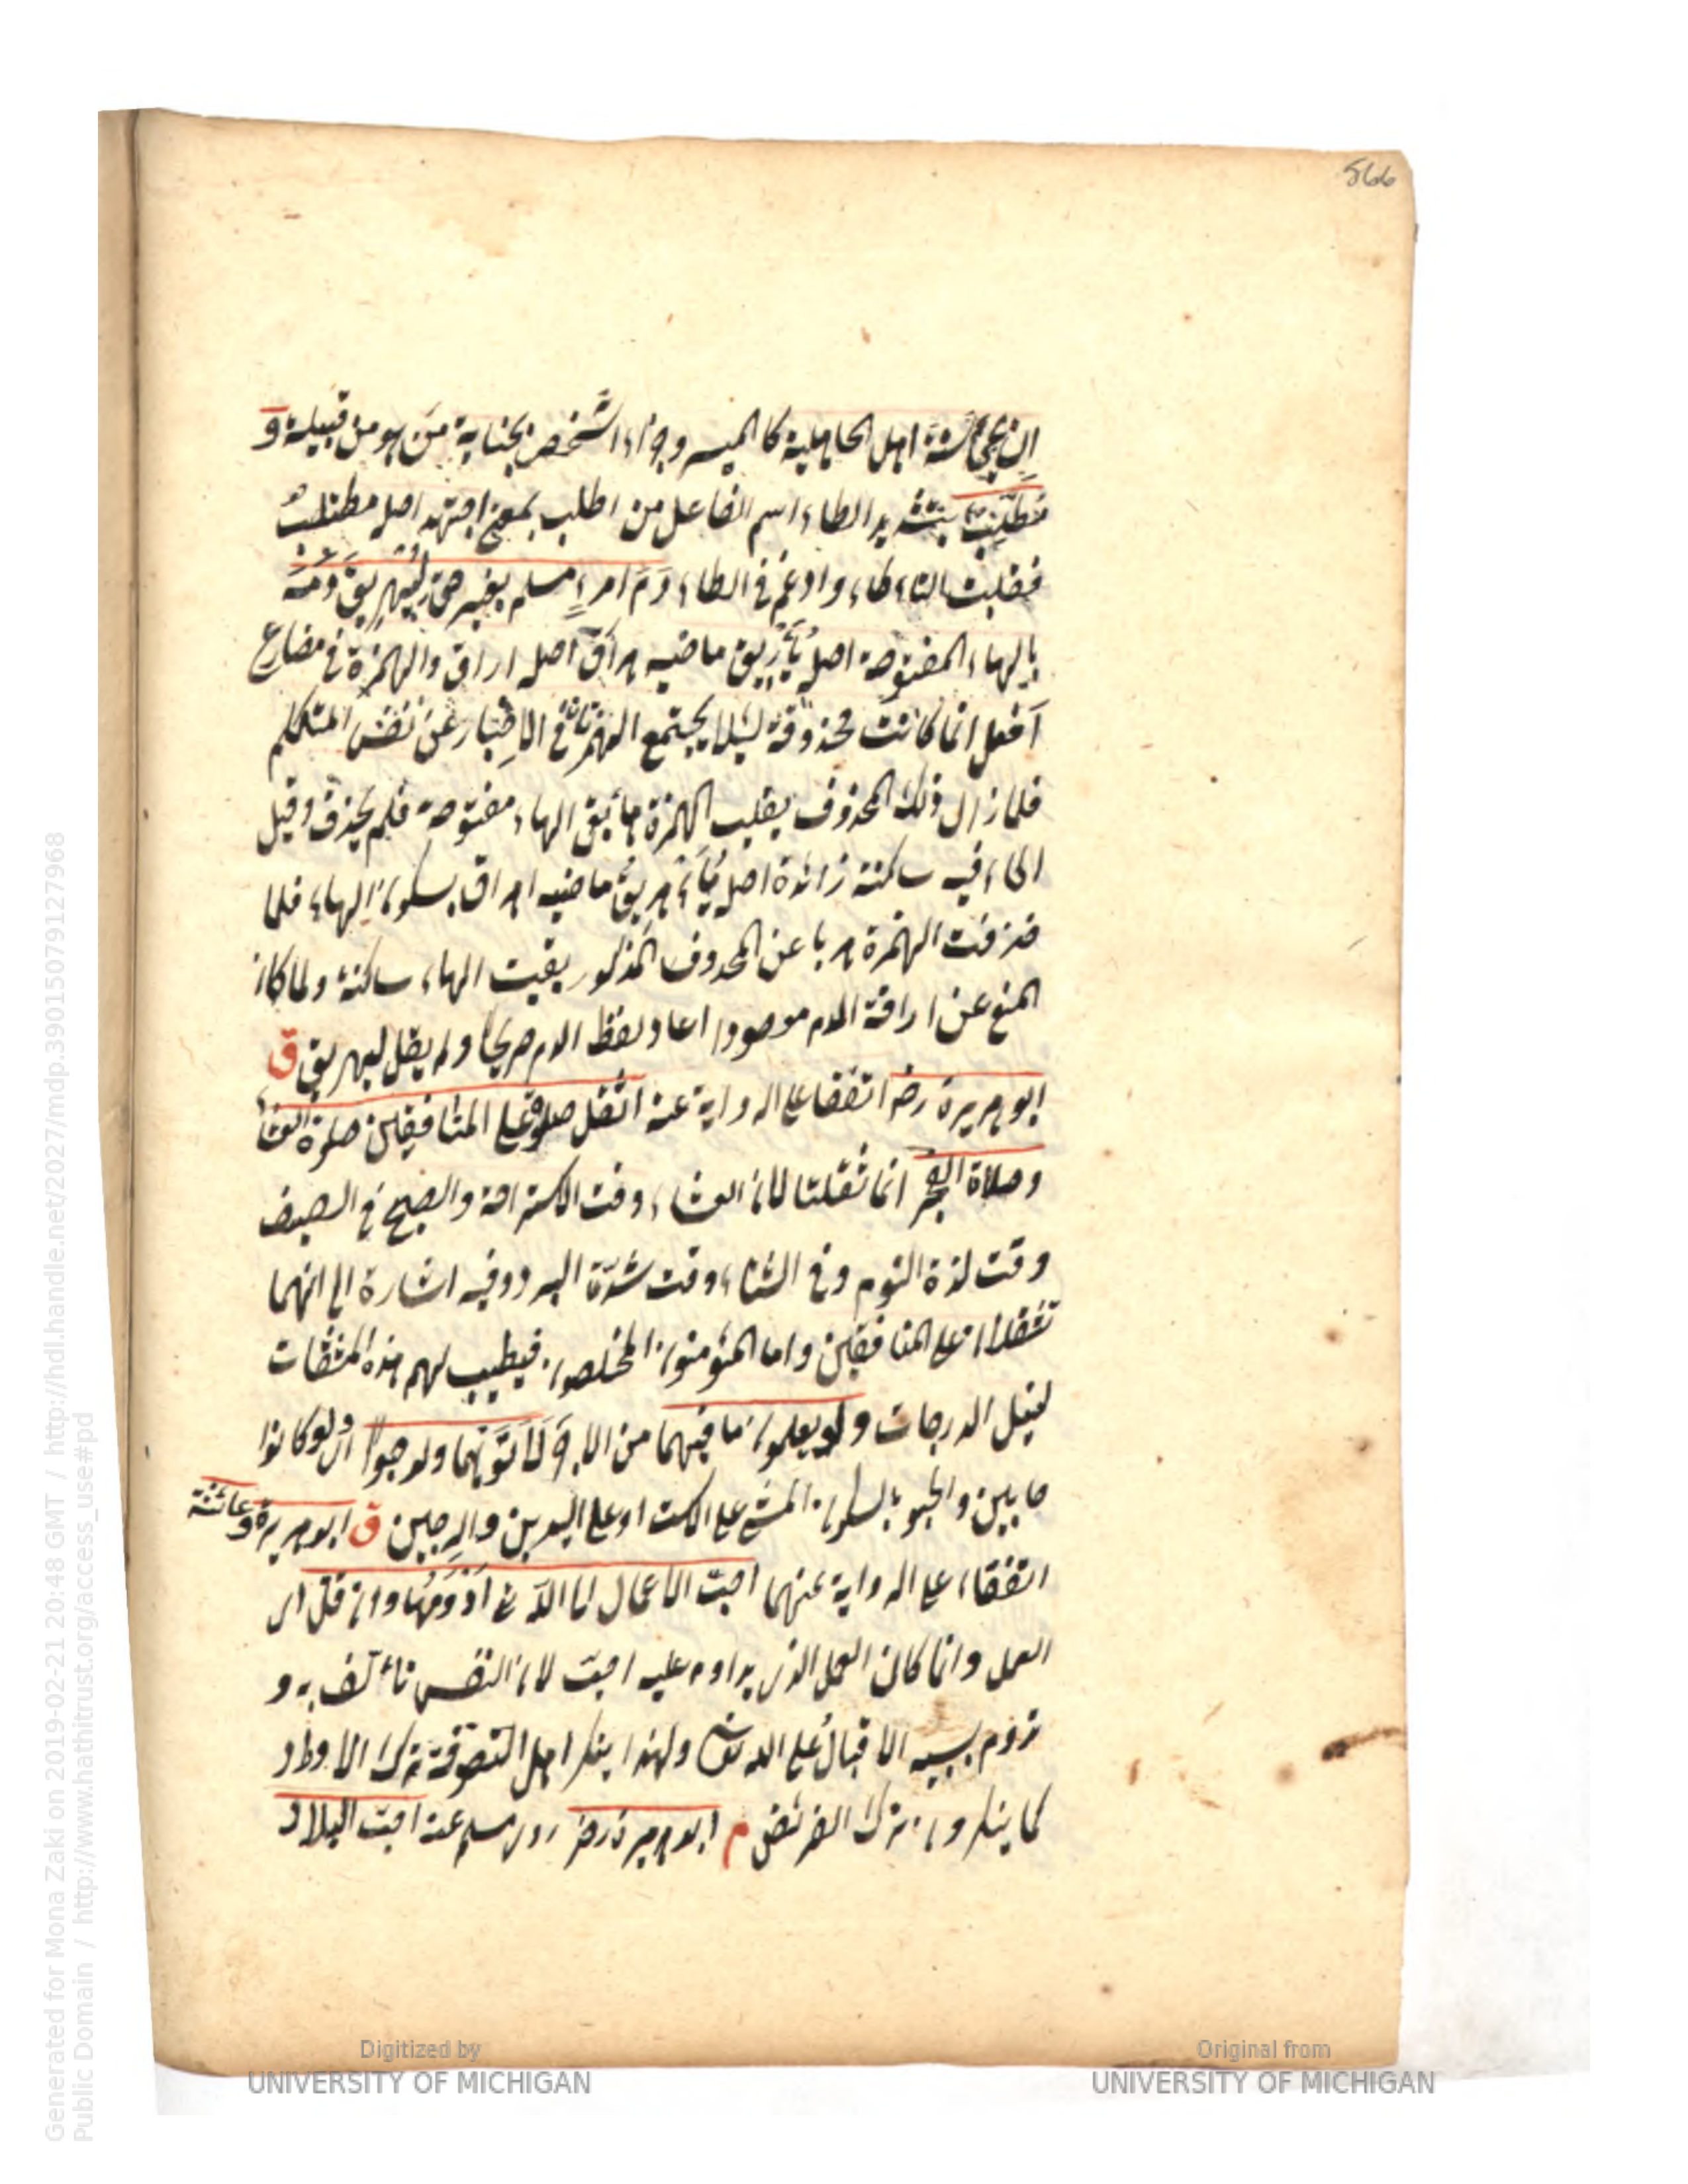 566
ان يحيي سنة اهل الجاهلية كالميسر وجزاء الشخص بجناية من هو من قبيلة و
مطلب بتشديد الطاء اسم الفاعل من اطلب بمعنى اجتهد اصله مطتلب
فقلبت التاء طاء وادغم في الطاء دم امرء مسلم بغير حق ليهريق دمه
بالهاء المفتوحة اصله يأريق ماضيه هراق اصله اراق والهمزة في مضارع
افعل انما كانت محذوفة لئلا يجتمع الهمزتان في الاخبار عن نفس المتكلم
فلما زال ذلك المحذوف بقلب الهمزة هاء بقى الهاء مفتوحة فلم يحذف وقيل
الهاء فيه ساكنة زائدة اصله يأهريق ماضيه اهراق بسكون الهاء فلما
حذفت الهمزة هربا عن المحذوف المذكور بقيت الهاء ساكنة ولما كان
المنع عن اراقة الدم اعاد لفظ الدم صريحا ولم يقل ليهريق ق
ابو هريرة رضه اتفقا على الرواية عنه اثقل صلوة على المنافقين صلوة العشاء
وصلاة الفجر انما ثقلتا لان العشاء وقت الاستراحة والصبح في الصيف
وقت لذة النوم وفي الشتاء وقت شدة البرد وفيه اشارة الى انهما
تثقلان على المنافقين واما المؤمنون المخلصون فيطيب لهم هذه المشقات
لنيل الدرجات ولو يعلمون ما فيهما من الاجر لاتوهما ولو حبوا اى ولو كانوا
حابين والحبو بالسكون المشى على الاست او على اليدين والرجلين ق ابو هريرة وعائشة
اتفقا على الرواية عنهما احب الاعمال الى الله تع ادومها وان قل اى
العمل وانما كان العمل الذى يداوم عليه احب لان النفس تتألف به و
تدوم بسببه الاقبال على الله تعالى ولهذا ينكر اهل التصوفة ترك الاوراد
كما ينكرون ترك الفرائض م ابو هريرة رضه روى مسلم عنه احب البلاد
Generated for Mona Zaki on 2019-02-21 20:48 GMT / http://hdl.handle.net/2027/mdp.39015079127968
Public Domain / http://www.hathitrust.org/access_use#pd
Digitized by
UNIVERSITY OF MICHIGAN
Original from
UNIVERSITY OF MICHIGAN